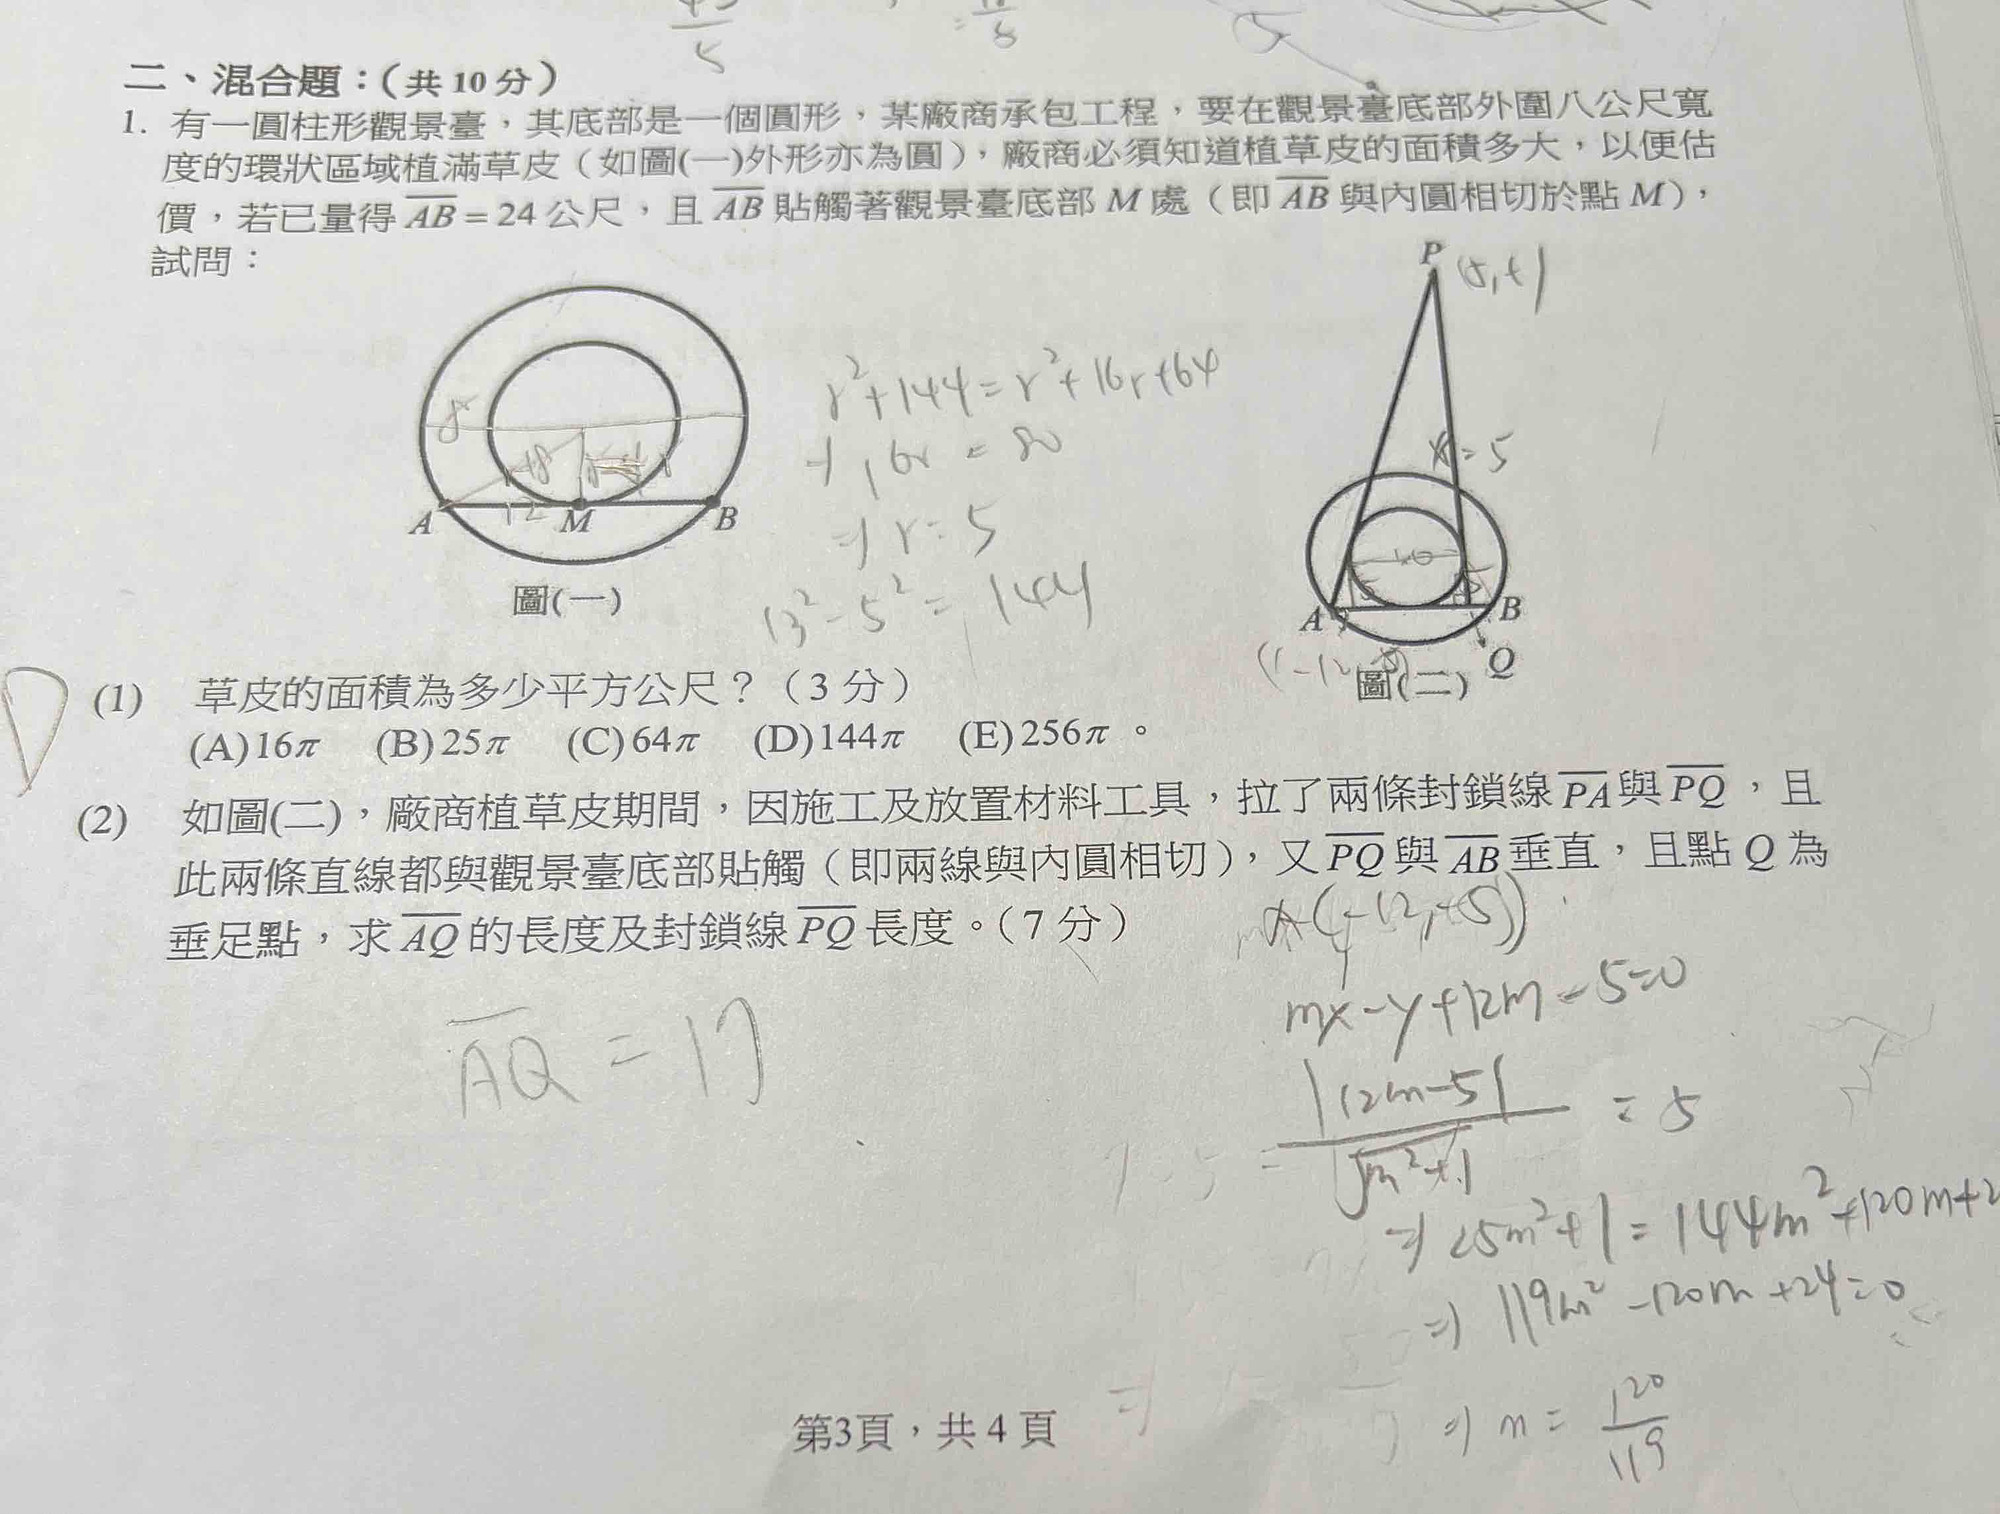 二、混合題：(共10分)
1. 有一圓柱形觀景臺，其底部是一個圓形，某廠商承包工程，要在觀景臺底部外圍八公尺寬
度的環狀區域植滿草皮（如圖(一)外形亦為圓），廠商必須知道植草皮的面積多大，以便估
價，若已量得 AB = 24 公尺，且 AB 貼觸著觀景臺底部 M 處（即 AB 與內圓相切於點 M），
試問：
P (5,t)
r²+144=r²+16r+64
⇒ 16r = 80
⇒ r=5
13²-5²=144
8
12
A M B
圖(一)
x=5
10
A B
Q
圖(二)
D
(1) 草皮的面積為多少平方公尺？（3 分）
(A)16π (B)25π (C)64π (D)144π (E)256π 。
(2) 如圖(二)，廠商植草皮期間，因施工及放置材料工具，拉了兩條封鎖線 PA 與 PQ，且
此兩條直線都與觀景臺底部貼觸（即兩線與內圓相切），又 PQ 與 AB 垂直，且點 Q 為
垂足點，求 AQ 的長度及封鎖線 PQ 長度。（7 分）
A(-12,-5)
mx-y+12m-5=0
AQ = 17
|12m-5| / √m²+1 = 5
⇒ 25m²+1=144m²+120m+2
⇒ 119m²-120m+24=0
⇒ m = 120/119
第3頁，共 4 頁